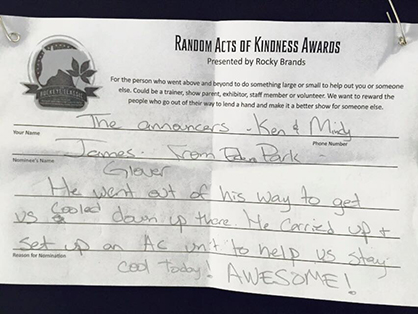 RANDOM ACTS OF KINDNESS AWARDS
Presented by Rocky Brands
For the person who went above and beyond to do something large or small to help out you or someone
else. Could be a trainer, show parent, exhibitor, staff member or volunteer. We want to reward the
people who go out of their way to lend a hand and make it a better show for someone else.
The annoncers - Ken & Mindy
Your Name Phone Number
James - From Eden Park
Nominee's Name
Glover
He went out of his way to get
us cooled down up there. He carried up +
set up an AC unit to help us stay
Reason for Nomination
cool today! AWESOME!